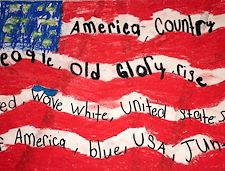 America, Country
eagle, old Glory, rise
ed, wave white, United states
America, blue, USA, Jun-